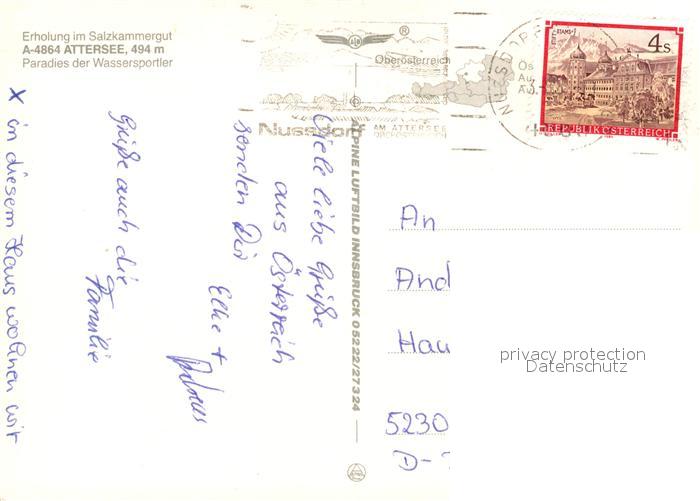 Erholung im Salzkammergut
A-4864 ATTERSEE, 494 m
Paradies der Wassersportler
Viele liebe Grüße
aus Österreich
senden Dir
Elke +
Grüße auch die
Familie
X in diesem Haus wohnen wir
ALPINE LUFTBILD INNSBRUCK 05222/27324
®
Oberösterreich
Nussdorf
AM ATTERSEE
OBERÖSTERREICH
NUSSDORF
STAMS
4 S
REPUBLIK ÖSTERREICH
An
And
Hau
5230
D-
privacy protection
Datenschutz